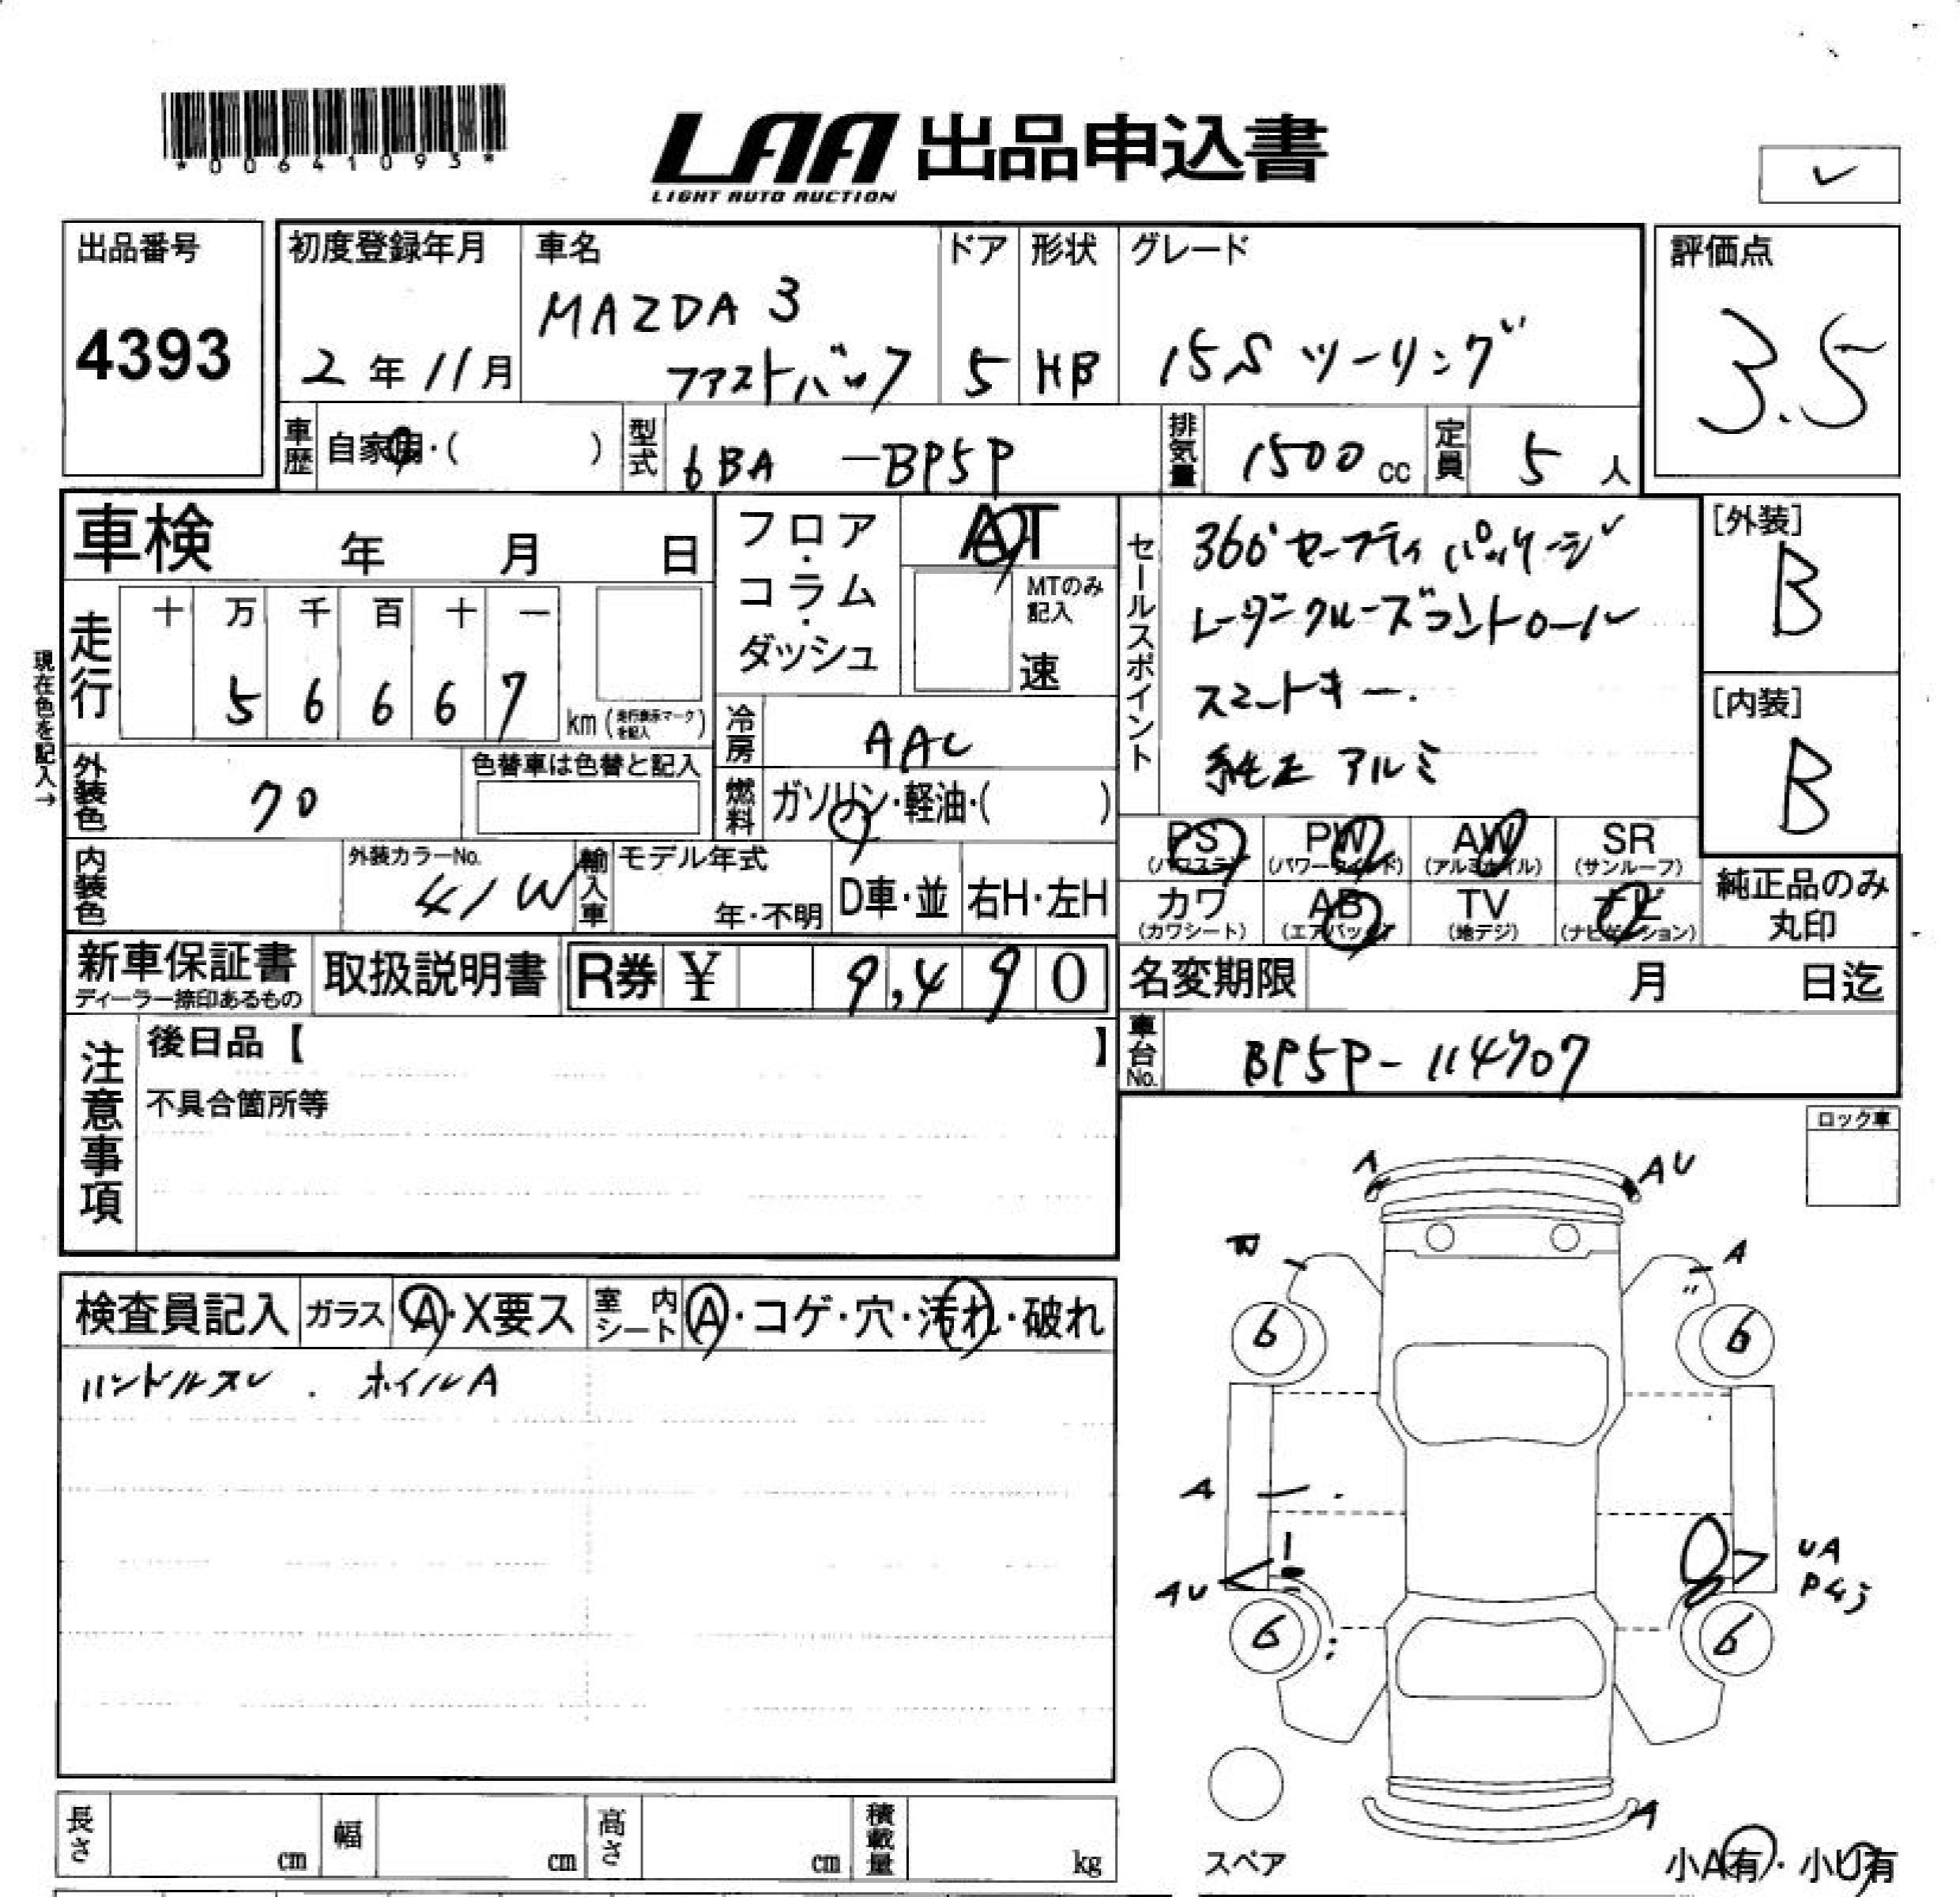 *00641093*
LAA 出品申込書
LIGHT AUTO AUCTION
出品番号
4393
初度登録年月
2年11月
車名
MAZDA 3
ファストバック
ドア
5
形状
HB
グレード
15S ツーリング
評価点
3.5
車歴
自家用・( )
型式
6BA -BP5P
排気量
1500 cc
定員
5 人
車検 年 月 日
走行
十 万 千 百 十 一
5 6 6 6 7
km (走行表示マークを記入)
現在色を記入→
外装色
クロ
色替車は色替と記入
内装色
外装カラーNo.
41W
フロア・コラム・ダッシュ
AT
MTのみ記入
速
冷房
AAC
燃料
ガソリン・軽油・( )
輸入車
モデル年式
年・不明
D車・並
右H・左H
セールスポイント
360°セーフティパッケージ
レーダークルーズコントロール
スマートキー.
純正アルミ
[外装]
B
[内装]
B
PS (パワステ)
PW (パワーウインド)
AW (アルミホイル)
SR (サンルーフ)
カワ (カワシート)
AB (エアバック)
TV (地デジ)
ナビ (ナビゲーション)
純正品のみ
丸印
新車保証書
ディーラー捺印あるもの
取扱説明書
R券 ¥ 9,490
名変期限 月 日迄
車台No.
BP5P-114707
注意事項
後日品【 】
不具合箇所等
ロック車
検査員記入
ガラス
A・X要ス
室内シート
A・コゲ・穴・汚れ・破れ
ハンドルスレ . ホイルA
A
AU
A
〃
6
6
A
AU
UA
P45
6
6
A
スペア
小A有・小U有
長さ cm
幅 cm
高さ cm
積載量 kg